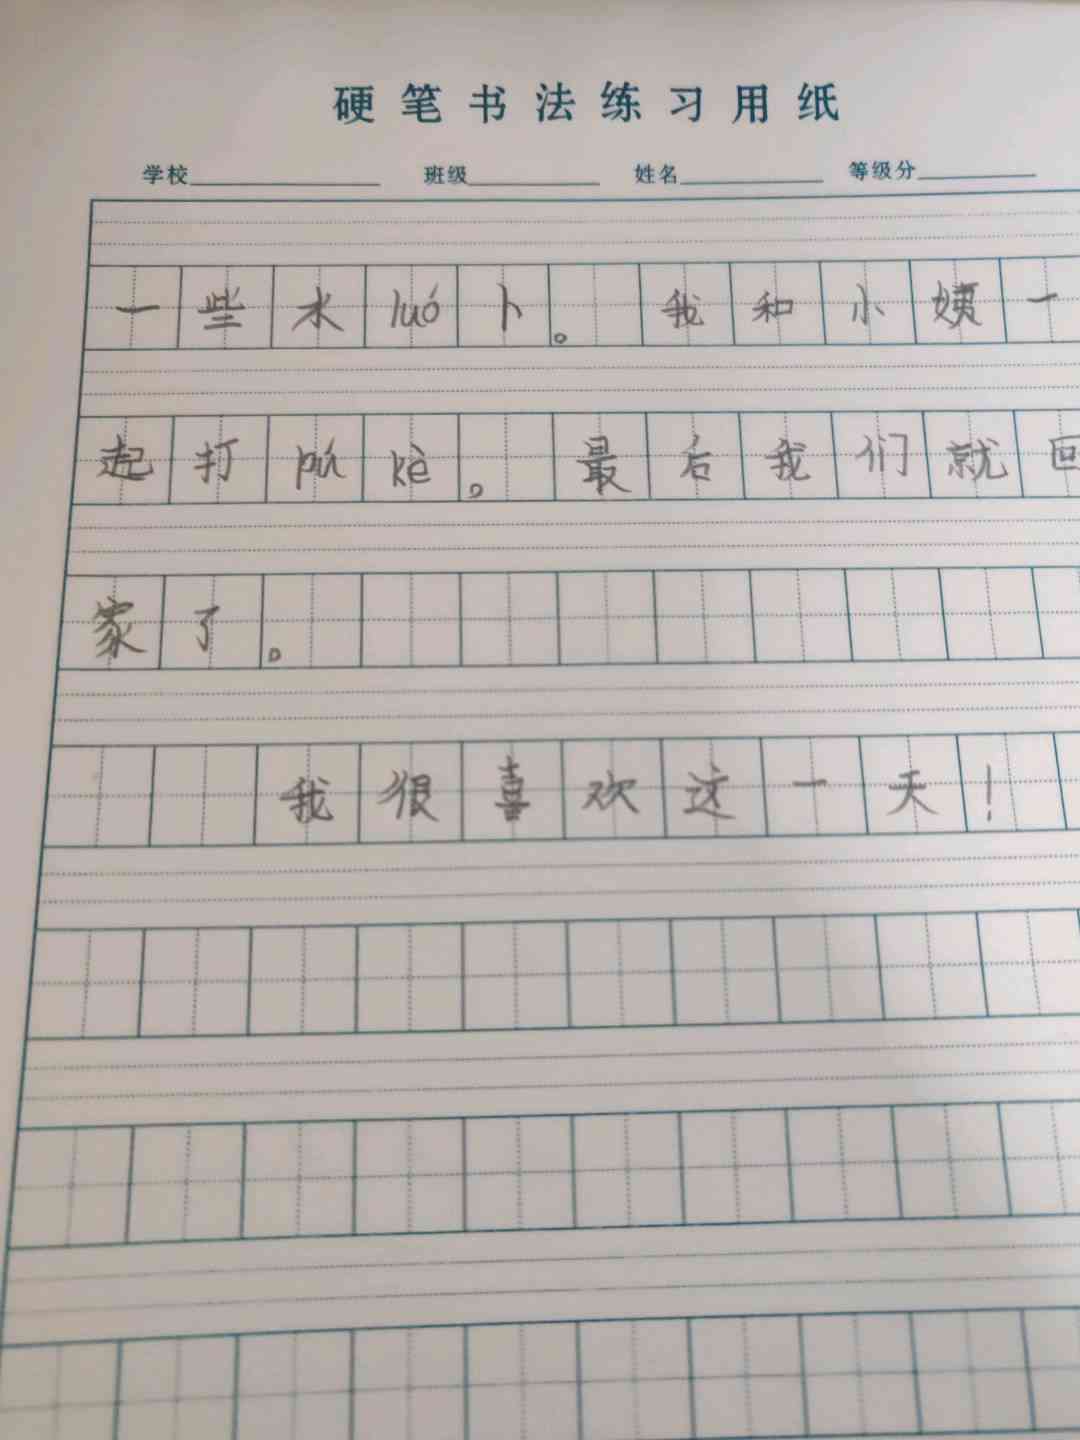 硬笔书法练习用纸
学校 班级 姓名 等级分
一些水luó卜。我和小姨一
起打pú kè。最后我们就回
家了。
我很喜欢这一天！